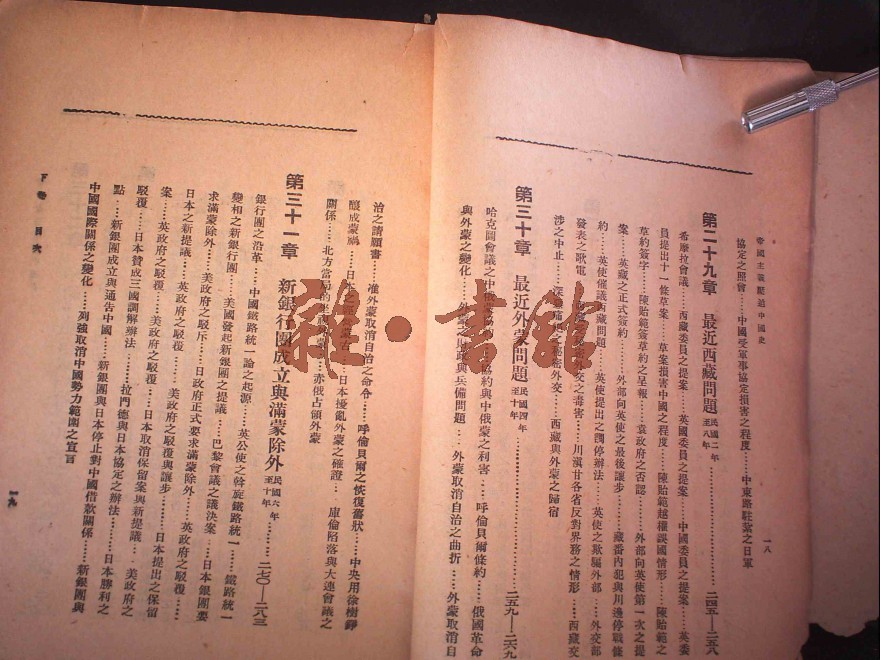 帝國主義壓迫中國史
一八
協定之照會……中國受軍事協定損害之程度……中東路駐紮之日軍
第二十九章 最近西藏問題 民國二年至八年……二四五—二五八
希摩拉會議……西藏委員之提案……英國委員之提案……中國委員之提案……英委
員提出十一條草案……草案損害中國之程度……陳貽範越權誤國情形……陳貽範之
草約簽字……陳貽範簽草約之呈報……袁政府之否認……外部向英使第一次之提
案……英藏之正式簽約……外部向英使之最後讓步……藏番內犯與川邊停戰條
約……英使催議西藏問題……英使提出之調停辦法……英使之欺騙外部……外交部
發表之歌電……秘密外交之毒害……川滇甘各省反對界務之情形……西藏交
涉之中止……之秘密外交……西藏與外蒙之歸宿
第三十章 最近外蒙問題 民國四年至十年……二五九—二六九
哈克圖會議之中俄蒙協約與中俄蒙之利害……呼倫貝爾條約……俄國革命
與外蒙之變化……外蒙之財政與兵備問題……外蒙取消自治之曲折……外蒙取消自
治之請願書……准外蒙取消自治之命令……呼倫貝爾之恢復舊狀……中央用徐樹錚
釀成蒙禍……日本之……日本擾亂外蒙之確證……庫倫陷落與大連會議之
關係……北方當局的坐……赤俄占領外蒙
第三十一章 新銀行團成立與滿蒙除外 民國六年至十年……二七〇—二八三
銀行團之沿革……中國鐵路統一論之起源……英公使之斡旋鐵路統一……鐵路統一
變相之新銀行團……美國發起新銀團之提議……巴黎會議之議決案……日本銀團要
求滿蒙除外……美政府之駁斥……日政府正式要求滿蒙除外……英政府之駁覆……
日本之新提議……英政府之駁覆……美政府之駁覆與讓步……日本提出之保留
案……英政府之駁覆……美政府之駁覆……日本取消保留案與新提議……美政府之
駁覆……日本贊成三國調解辦法……拉門德與日本協定之辦法……日本勝利之
點……新銀團成立與通告中國……新銀團與日本停止對中國借款關係……新銀團與
中國國際關係之變化……列強取消中國勢力範圍之宣言
下卷 目次
一九
雜·書館